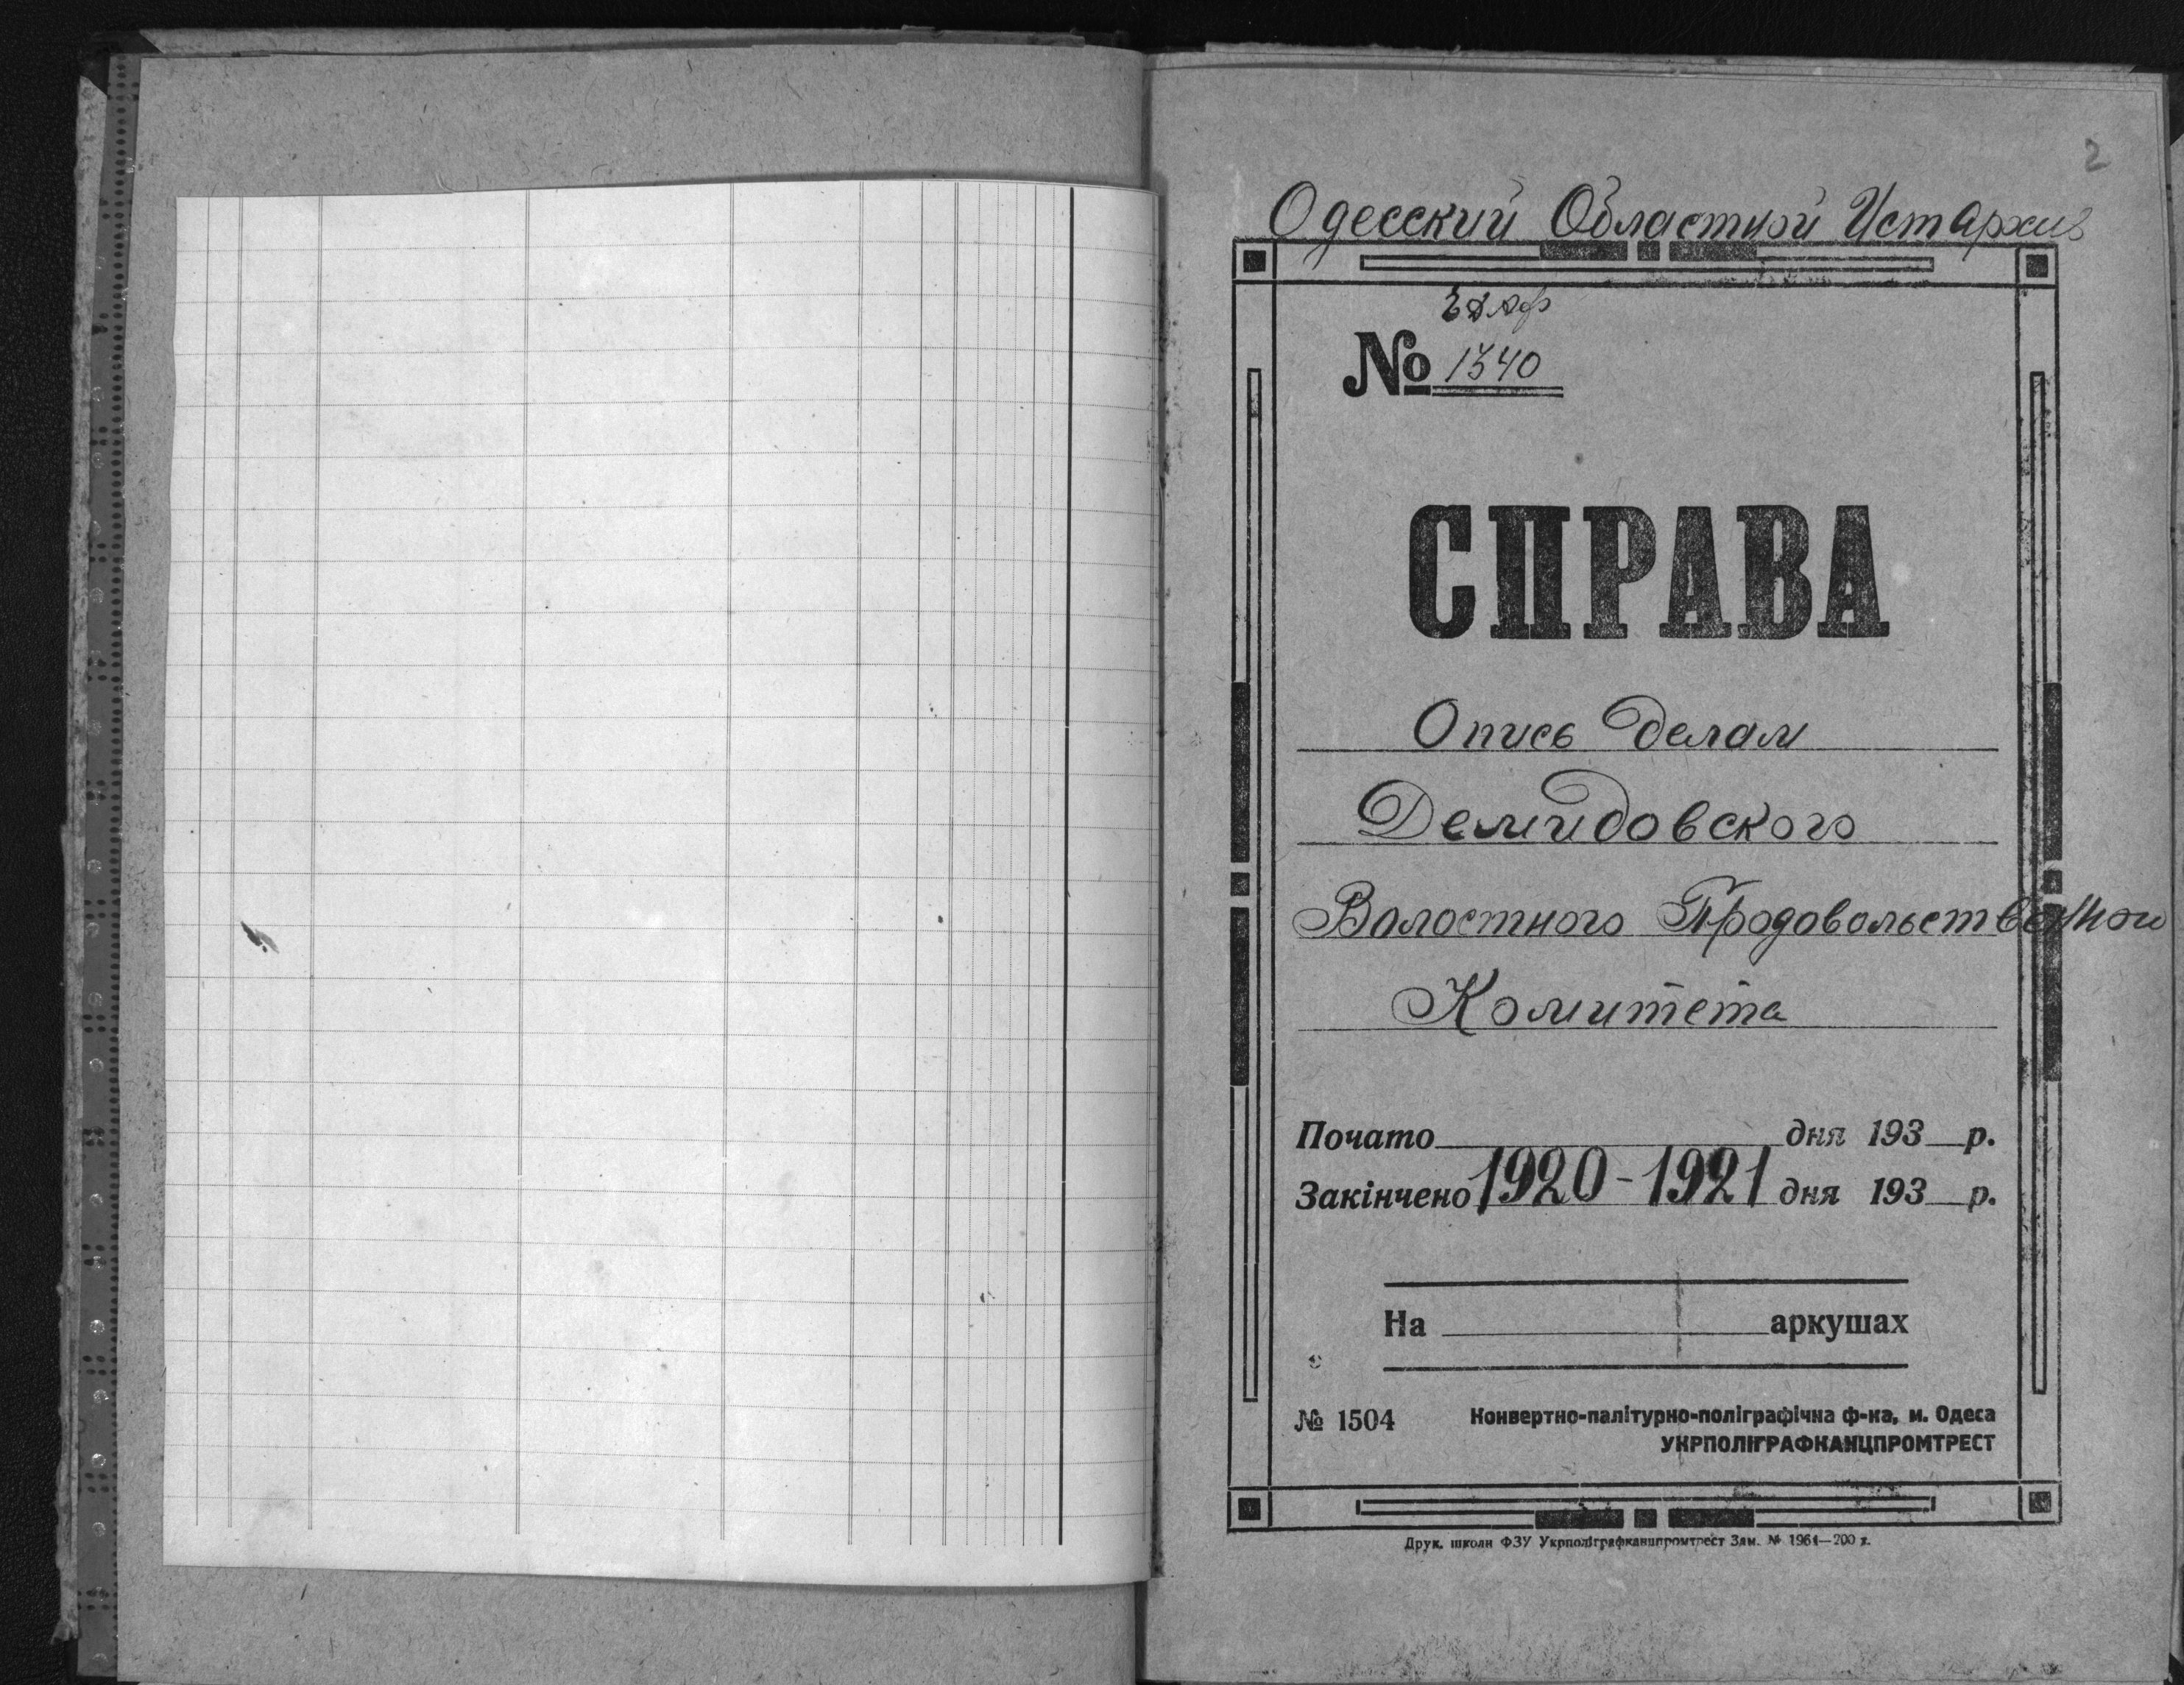 2
Одесский Областной Истархив
№ 1340
СПРАВА
Опись делам
Демидовского
Волостного Продовольственного
Комитета
Почато дня 193 р.
Закінчено 1920-1921 дня 193 р.
На аркушах
№ 1504 Конвертно-палітурно-поліграфічна ф-ка, м. Одеса
УКРПОЛІГРАФКАНЦПРОМТРЕСТ
Друк. школи ФЗУ Укрполіграфканцпромтрест Зам. № 1961—200 т.